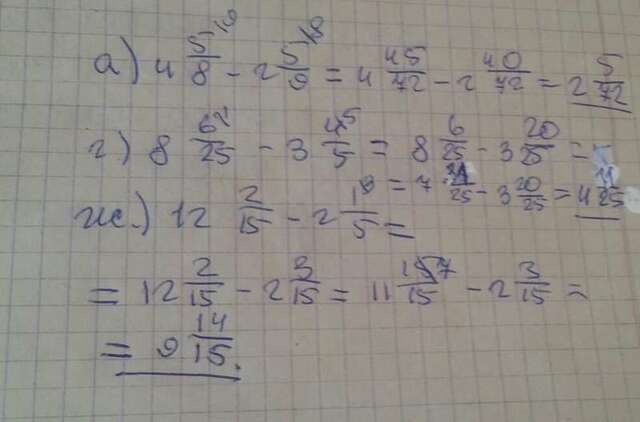 а) 4 5/8 \9 − 2 5/9 \8 = 4 45/72 − 2 40/72 = 2 5/72
г) 8 6/25 − 3 4/5 \5 = 8 6/25 − 3 20/25 =
= 7 31/25 − 3 20/25 = 4 11/25
ж.) 12 2/15 − 2 1/5 \3 =
= 12 2/15 − 2 3/15 = 11 17/15 − 2 3/15 =
= 9 14/15.